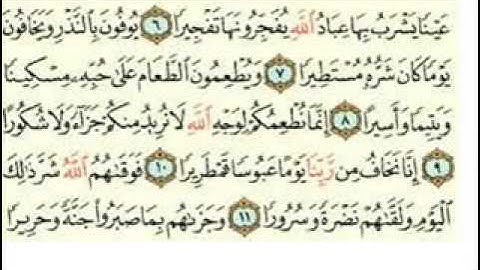 عَيْنًا يَشْرَبُ بِهَا عِبَادُ ٱللَّهِ يُفَجِّرُونَهَا تَفْجِيرًا ٦ يُوفُونَ بِٱلنَّذْرِ وَيَخَافُونَ
يَوْمًا كَانَ شَرُّهُۥ مُسْتَطِيرًا ٧ وَيُطْعِمُونَ ٱلطَّعَامَ عَلَىٰ حُبِّهِۦ مِسْكِينًا
وَيَتِيمًا وَأَسِيرًا ٨ إِنَّمَا نُطْعِمُكُمْ لِوَجْهِ ٱللَّهِ لَا نُرِيدُ مِنكُمْ جَزَآءً وَلَا شُكُورًا
٩ إِنَّا نَخَافُ مِن رَّبِّنَا يَوْمًا عَبُوسًا قَمْطَرِيرًا ١٠ فَوَقَىٰهُمُ ٱللَّهُ شَرَّ ذَٰلِكَ
ٱلْيَوْمِ وَلَقَّىٰهُمْ نَضْرَةً وَسُرُورًا ١١ وَجَزَىٰهُم بِمَا صَبَرُوا۟ جَنَّةً وَحَرِيرًا